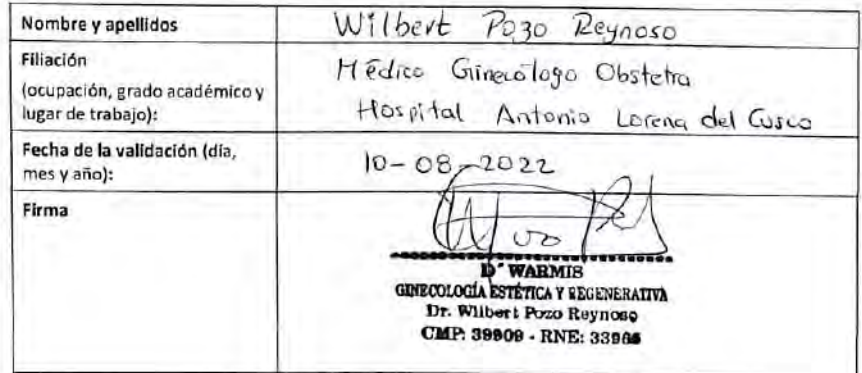 Nombre y apellidos
Wilbert Pozo Reynoso
Filiación
(ocupación, grado académico y
lugar de trabajo):
Médico Ginecólogo Obstetra
Hospital Antonio Lorena del Cusco
Fecha de la validación (día,
mes y año):
10-08-2022
Firma
D´ WARMIS
GINECOLOGÍA ESTÉTICA Y REGENERATIVA
Dr. Wilbert Pozo Reynoso
CMP: 39909 - RNE: